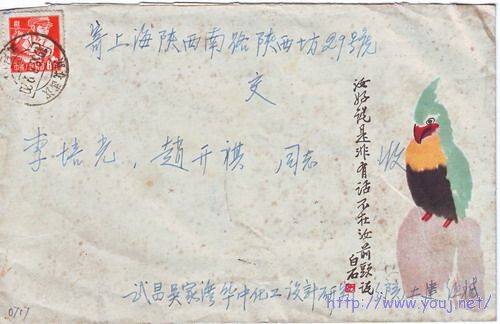 寄上海陕西南路陕西坊29號
交
李培光，趙开祺 同志 收
汝好說是非有話不在汝前頭說
白石
武昌吴家湾华中化工設計研
土建
http://www.youj.net/
0717
8